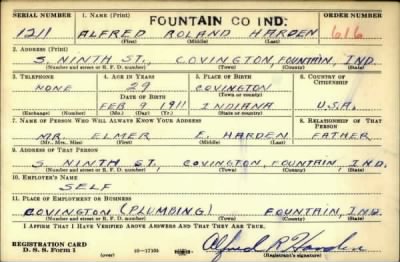 SERIAL NUMBER 1. NAME (Print) FOUNTAIN CO IND: ORDER NUMBER
1211 ALFRED ROLAND HARDEN 616
(First) (Middle) (Last)
2. ADDRESS (Print)
S. NINTH ST., COVINGTON, FOUNTAIN, IND.
(Number and street or R. F. D. number) (Town) (County) (State)
3. TELEPHONE 4. AGE IN YEARS 5. PLACE OF BIRTH 6. COUNTRY OF CITIZENSHIP
NONE 29 COVINGTON
DATE OF BIRTH (Town or county)
FEB 9 1911 INDIANA U.S.A.
(Exchange) (Number) (Mo.) (Day) (Yr.) (State or country)
7. NAME OF PERSON WHO WILL ALWAYS KNOW YOUR ADDRESS 8. RELATIONSHIP OF THAT PERSON
MR. ELMER E. HARDEN FATHER
(Mr., Mrs., Miss) (First) (Middle) (Last)
9. ADDRESS OF THAT PERSON
S. NINTH ST. COVINGTON, FOUNTAIN IND.
(Number and street or R. F. D. number) (Town) (County) (State)
10. EMPLOYER'S NAME
SELF
11. PLACE OF EMPLOYMENT OR BUSINESS
COVINGTON (PLUMBING) FOUNTAIN, IND.
(Number and street or R. F. D. number) (Town) (County) (State)
I AFFIRM THAT I HAVE VERIFIED ABOVE ANSWERS AND THAT THEY ARE TRUE.
REGISTRATION CARD
D. S. S. Form 1 (over) 16—17105 Alfred R. Harden
(Registrant's signature)